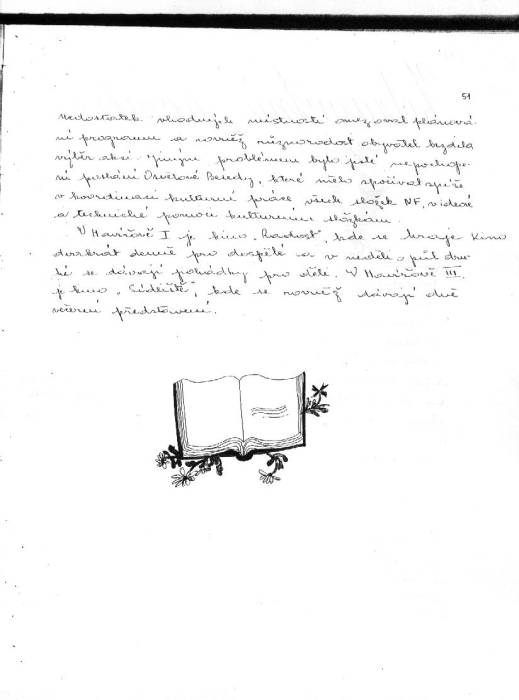 51
Nedostatek vhodných místností omezoval plánová-
ní programu a rovněž různorodost obyvatel
výběr akcí. Jiným problémem bylo jisté nepochope-
ní poslání Osvětové Besedy, které mělo spočívat spíše
v koordinaci kulturní práce všech složek NF, v ideové
a technické pomoci kulturním složkám.
V Havířově I je kino „Radost", kde se hraje kino
dvakrát denně pro dospělé a v neděli o půl dru-
hé se dávají pohádky pro děti. V Havířově III.
je kino „Sídliště", kde se rovněž dávají dvě
večerní představení.